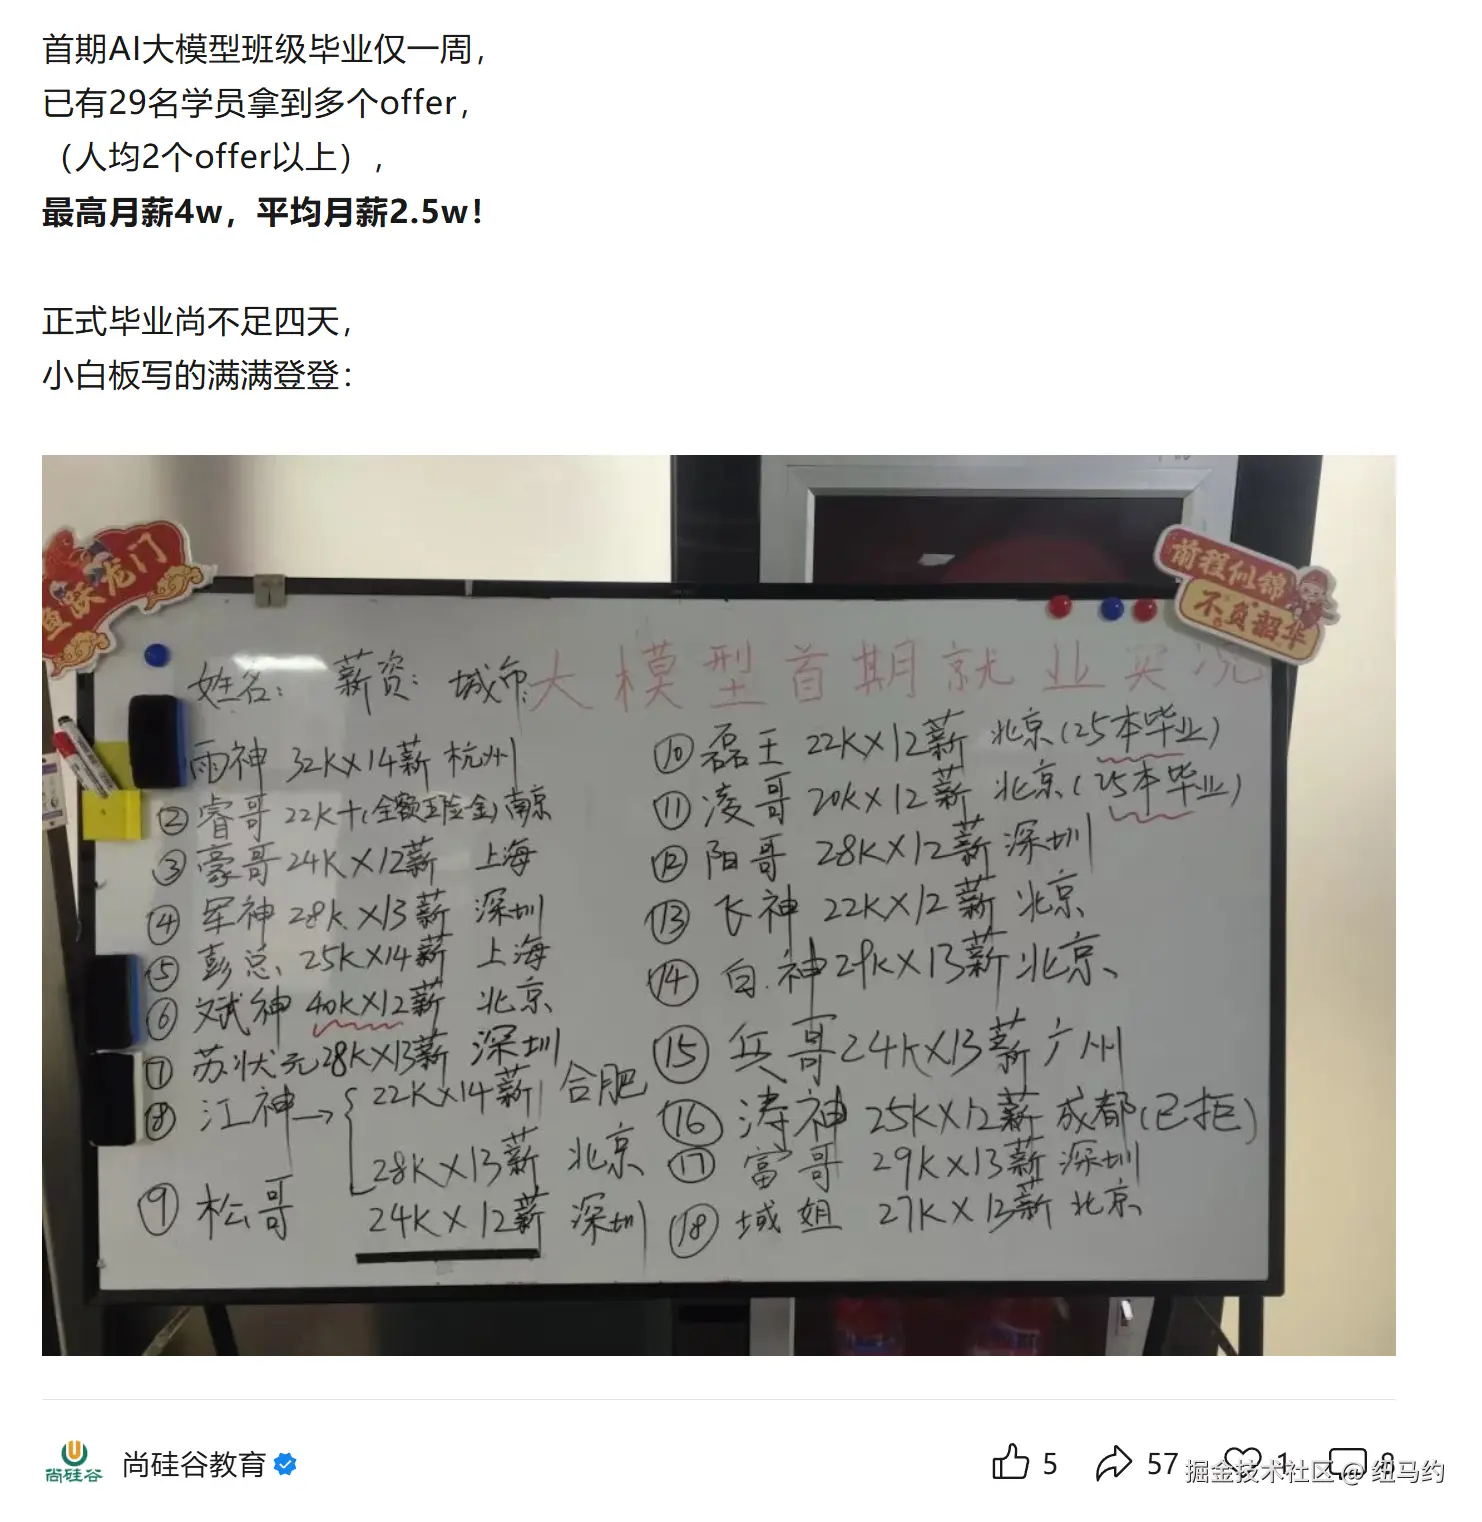 首期AI大模型班级毕业仅一周，
已有29名学员拿到多个offer，
（人均2个offer以上），
最高月薪4w，平均月薪2.5w！
正式毕业尚不足四天，
小白板写的满满登登：
鱼跃龙门
前程似锦
不负韶华
大模型首期就业实况
姓名： 薪资： 城市：
雨神 32K×14薪 杭州
② 睿哥 22K+(全额五险金) 南京
③ 豪哥 24K×12薪 上海
④ 军神 28K×13薪 深圳
⑤ 彭总 25K×14薪 上海
⑥ 斌神 40K×12薪 北京
⑦ 苏状元 28K×13薪 深圳
⑧ 江神→{ 22K×14薪 合肥
28K×13薪 北京
⑨ 松哥 24K×12薪 深圳
⑩ 磊王 22K×12薪 北京(25本毕业)
⑪ 凌哥 20K×12薪 北京(25本毕业)
⑫ 阳哥 28K×12薪 深圳
⑬ 飞神 22K×12薪 北京
⑭ 白神 29K×13薪 北京
⑮ 兵哥 24K×13薪 广州
⑯ 涛神 25K×12薪 成都(已拒)
⑰ 富哥 29K×13薪 深圳
⑱ 域姐 27K×13薪 北京
尚硅谷
尚硅谷教育 5 57 1 8
掘金技术社区 @ 纽马约